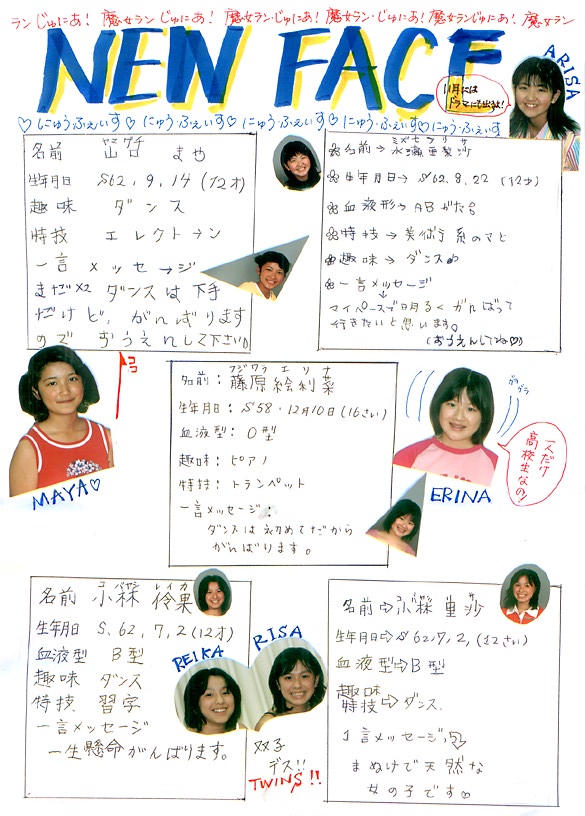 ランじゅにあ! 魔女ランじゅにあ! 魔女ラン・じゅにあ! 魔女ラン・じゅにあ! 魔女ランじゅにあ! 魔女ラン
NEW FACE
ARISA
11月には
ドラマにも出るよ!
♡にゅうふぇいす♡にゅう・ふぇいす♡にゅう・ふぇいす♡にゅう・ふぇいす♡にゅうふぇいす
ヤマグチ
名前 山口 まや
生年月日 S62,9,14(12才)
趣味 ダンス
特技 エレクトーン
一言メッセージ
まだ×2 ダンスは下手
だけど、がんばります
ので おうえんして下さい。
ココ
MAYA♡
名前→永瀬亜梨沙
生年月日→S62.8.22(12才)
血液形→ABがた
特技→美術系のこと
趣味→ダンス
一言メッセージ
↓
マイペースで明るくがんばって
行きたいと思います。
(おうえんしてね♡)
フジワラ エリナ
名前:藤原絵利菜
生年月日:S58・12月10日(16さい)
血液型:O型
趣味:ピアノ
特技:トランペット
一言メッセージ:
ダンスは初めてだから
がんばります。
一人だけ
高校生なの!
ERINA
コバヤシ レイカ
名前 小林 伶果
生年月日 S,62,7,2(12才)
血液型 B型
趣味 ダンス
特技 習字
一言メッセージ
一生懸命がんばります。
REIKA
RISA
双子
デス!!
TWINS!!
名前⇨小林 里沙
生年月日→S62,7,2,(12さい)
血液型⇨B型
趣味
特技⇨ダンス
1言メッセージ
まぬけで天然な
女の子です♡